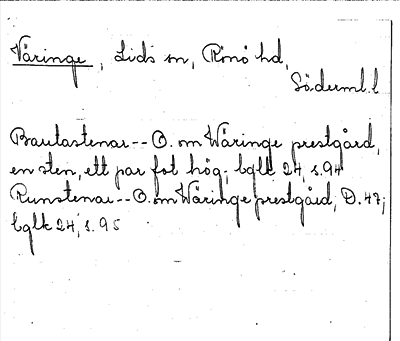 Våringe, Lids sn, Rönö hd,
Söderml. l
Bautastenar -- O. om Wåringe prestgård,
en sten, ett par fot hög; bglk 24, s. 94
Runstenar -- O. om Wåringe prestgård, D. 47;
bglk 24, s. 95